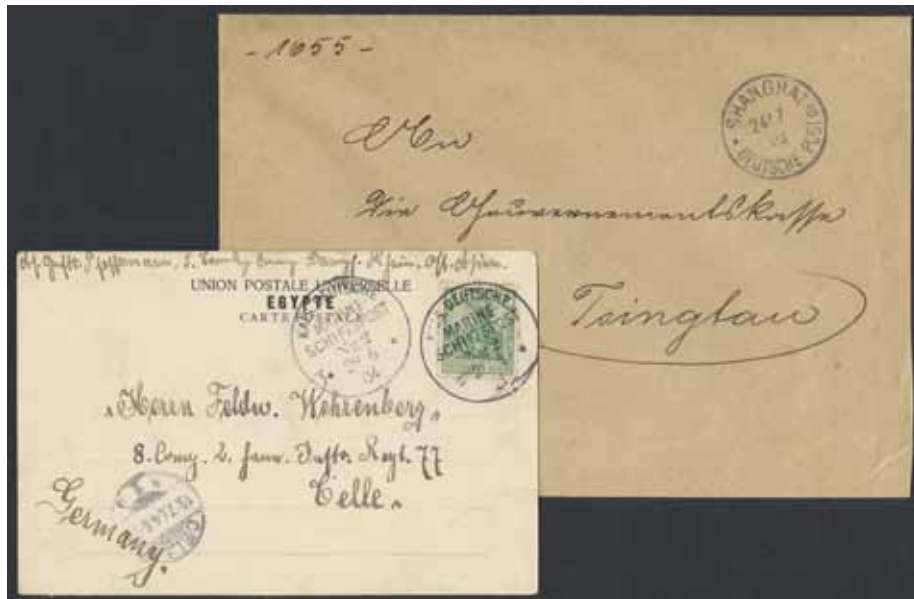 - 1055 -
SHANGHAI
24/1
DEUTSCHE POST
An
die Gouvernementskasse
Tsingtau
UNION POSTALE UNIVERSELLE
EGYPTE
CARTE POSTALE
DEUTSCHE
MARINE-
SCHIFFSPOST
MARINE-
SCHIFFSPOST
Herrn Feldw. Wehrenberg
8. Comp. 2. hann. Inftr. Regt. 77
Celle
Germany.